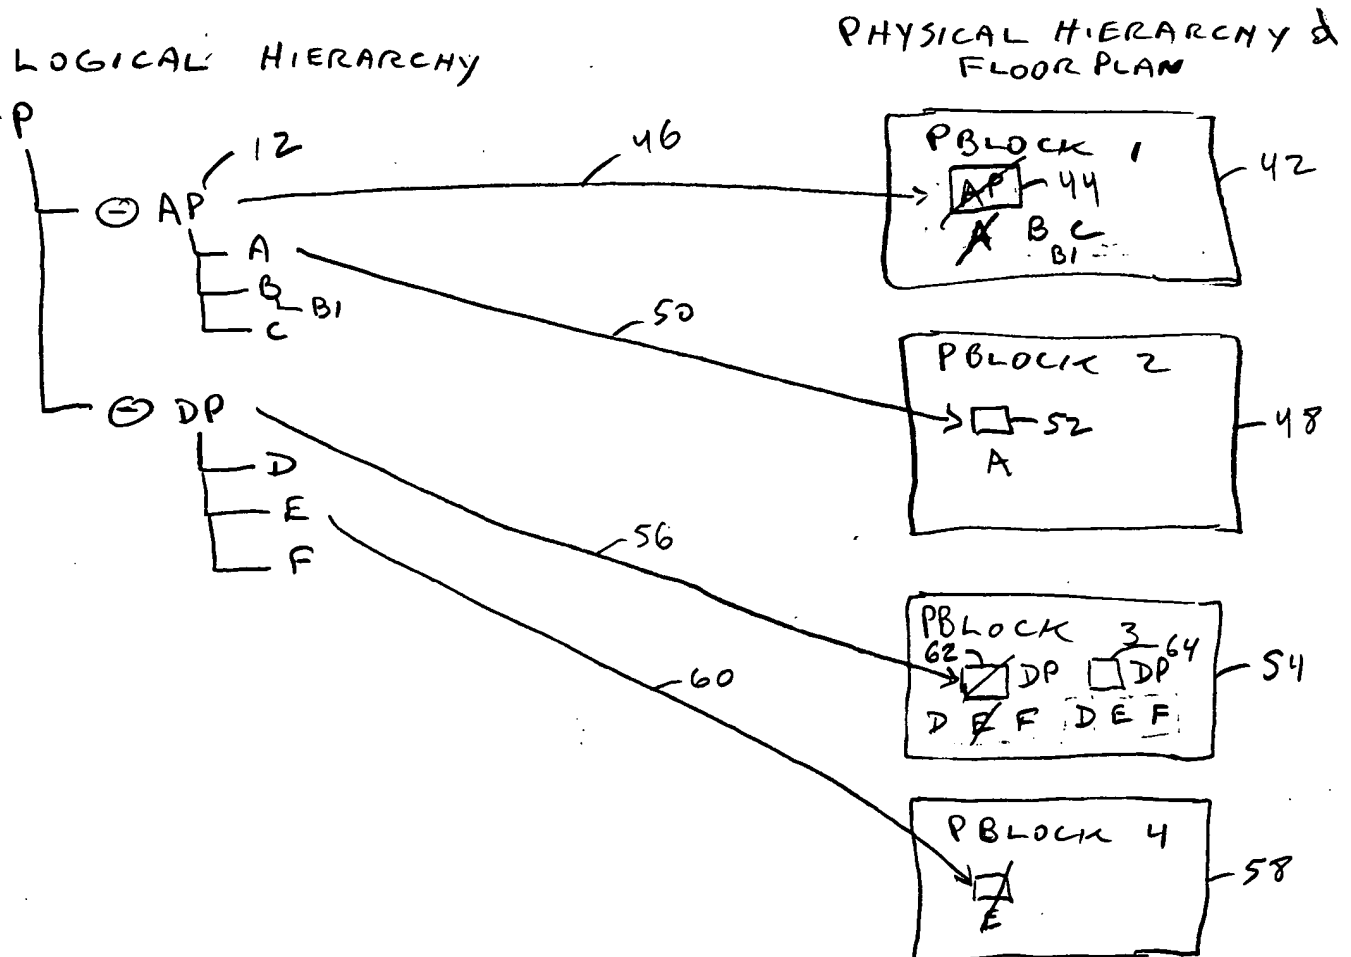 LOGICAL HIERARCHY
PHYSICAL HIERARCHY &
FLOOR PLAN
P
12
46
AP
A
B
B1
C
50
DP
D
E
F
56
60
PBLOCK 1
42
AP
44
A B C
B1
PBLOCK 2
48
52
A
PBLOCK 3
62
DP
64
DP
54
D E F D E F
PBLOCK 4
58
E